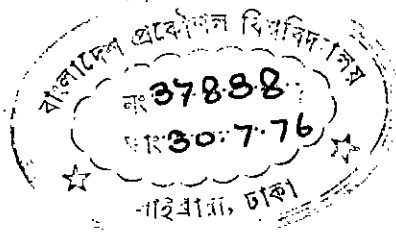 বাংলাদেশ প্রকৌশল বিশ্ববিদ্যালয়
নং 37838
তাং 30.7.76
লাইব্রেরী, ঢাকা